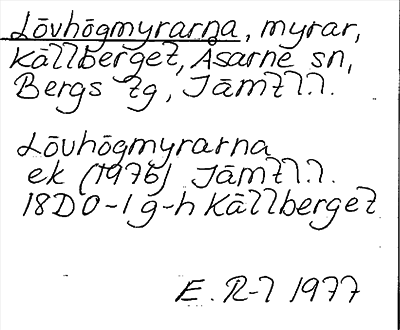 Lövhögmyrarna, myrar,
Källberget, Åsarne sn,
Bergs tg, Jämtl.l.
Lövhögmyrarna
ek (1976) Jämtl.l.
18D 0-1 g-h Källberget
E. R-l 1977